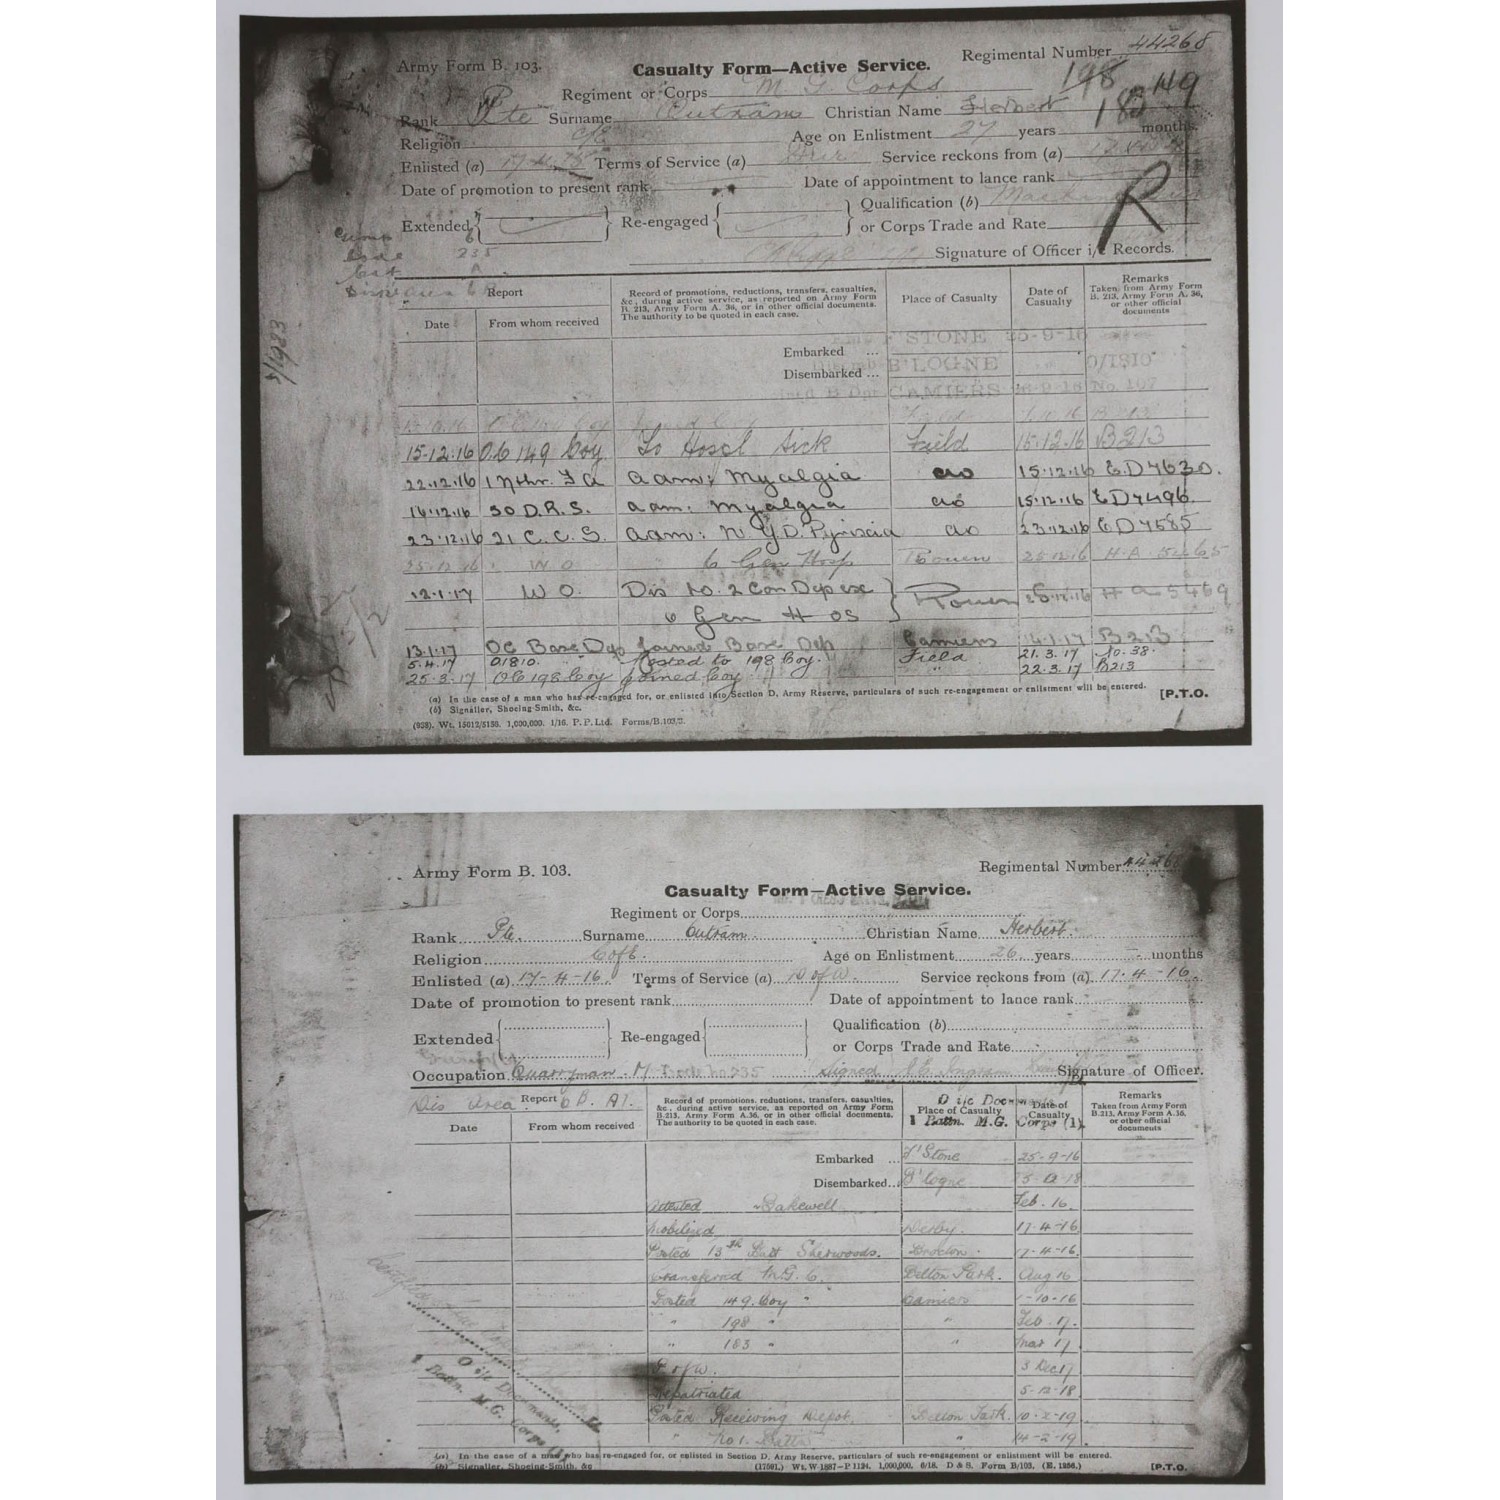 Army Form B. 103.
Casualty Form—Active Service.
Regimental Number 44268
Regiment or Corps M. G. Corps
198
182 149
Rank Pte Surname Outram Christian Name Herbert
Religion C/E Age on Enlistment 27 years months.
Enlisted (a) Terms of Service (a) Service reckons from (a)
Date of promotion to present rank Date of appointment to lance rank
Extended Re-engaged Qualification (b)
or Corps Trade and Rate
R
235
A
Signature of Officer i/c Records.
Report
Date From whom received
Record of promotions, reductions, transfers, casualties,
&c., during active service, as reported on Army Form
B. 213, Army Form A. 36, or in other official documents.
The authority to be quoted in each case.
Place of Casualty
Date of
Casualty
Remarks
Taken from Army Form
B. 213, Army Form A. 36,
or other official
documents
Embarked ... F'STONE 25-9-16
Disembarked ... B'LOGNE 0/1810
CAMIERS
15.12.16 OC 149 Coy To Hospl Sick Field 15.12.16 B213
22.12.16 1 Nthr. F a adm: Myalgia do 15.12.16 E.D7630.
16.12.16 50 D.R.S. adm: Myalgia do 15.12.16 ED7496
23.12.16 21 C.C.S. adm: N.Y.D. Pyrixcia do 23.12.16 ED7585
25.12.16 W O 6 Gen Hosp Rouen 25.12.16 H.A. 5465
12.1.17 W O. Dis to. 2 Con Dep ex Rouen H a 5469
6 Gen H OS
13.1.17 OC Base Dep Joined Base Dep Camiers 4.1.17 B213
5.4.17 01810. Posted to 198 Coy. Field 21.3.17 10.38.
25.3.17 OC 198 Coy Joined Coy " 22.3.17 B213
(a) In the case of a man who has re-engaged for, or enlisted into Section D, Army Reserve, particulars of such re-engagement or enlistment will be entered.
(b) Signaller, Shoeing-Smith, &c.
[P.T.O.
(938). Wt. 15012/5150. 1,000,000. 1/16. P.P. Ltd. Forms/B.103/2.
Army Form B. 103.
Regimental Number
Casualty Form—Active Service.
Regiment or Corps
Rank Pte. Surname Outram. Christian Name Herbert.
Religion CofE. Age on Enlistment 26 years - months
Enlisted (a) 17-4-16 Terms of Service (a) D of W. Service reckons from (a) 17-4-16
Date of promotion to present rank Date of appointment to lance rank
Extended Re-engaged Qualification (b)
or Corps Trade and Rate
Occupation Quarryman. Signed Signature of Officer.
Dis Area 6 B. A1.
Report
Date From whom received
Record of promotions, reductions, transfers, casualties,
&c., during active service, as reported on Army Form
B.213, Army Form A.36, or in other official documents.
The authority to be quoted in each case.
O i/c Documents
Place of Casualty
1 Battn. M.G. Corps (1).
Date of
Casualty
Remarks
Taken from Army Form
B.213, Army Form A.36,
or other official
documents
Embarked ... F'Stone 25-9-16
Disembarked... B'logne
Attested Bakewell Feb. 16.
Mobilized Derby. 17-4-16
Posted 13th Batt Sherwoods. Brocton. 17-4-16.
Transferred M.G.C. Belton Park. Aug 16
Posted 149. Coy " Camiers 1-10-16
" 198 " " Feb. 17.
" 183 " " Mar 17
P of W. 3 Dec 17
Repatriated 5-12-18.
Posted Receiving Depot. Belton Park. 10-2-19
" No 1. Battn " 14-2-19.
Certified
O i/c Documents,
1 Battn. M.G. Corps
(a) In the case of a man who has re-engaged for, or enlisted in Section D, Army Reserve, particulars of such re-engagement or enlistment will be entered.
(b) Signaller, Shoeing-Smith, &c
(17591.) Wt. W 1887—P 1124. 1,000,000. 6/18. D & S. Form B/103. (E. 1256.)
[P.T.O.